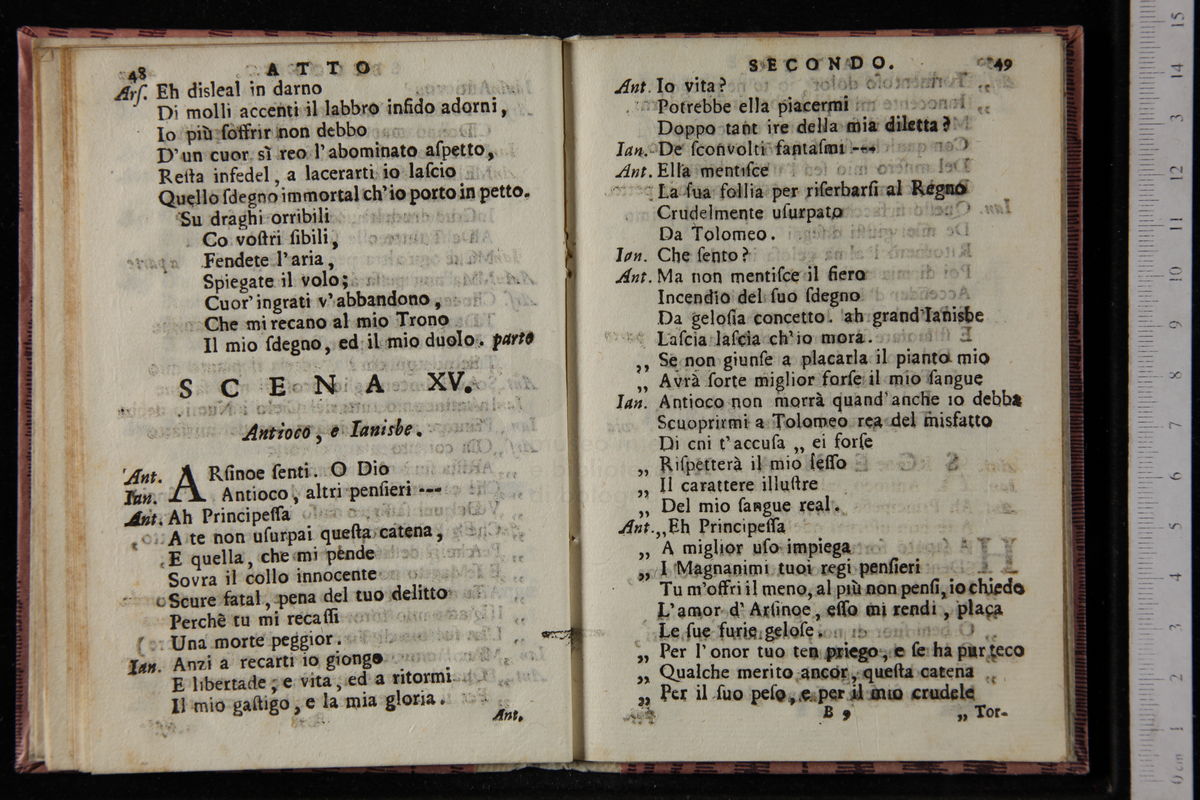 48 ATTO
Arſ. Eh disleal in darno
Di molli accenti il labbro infido adorni,
Io più ſoffrir non debbo
D'un cuor sì reo l'abominato aſpetto,
Reſta infedel, a lacerarti io laſcio
Quello ſdegno immortal ch'io porto in petto.
Su draghi orribili
Co voſtri ſibili,
Fendete l'aria,
Spiegate il volo;
Cuor'ingrati v'abbandono,
Che mi recano al mio Trono
Il mio ſdegno, ed il mio duolo. parte
SCENA XV.
Antioco, e Ianisbe.
Ant. ARſinoe ſenti. O Dio
Ian. Antioco, altri penſieri ---
Ant. Ah Principeſſa
A te non uſurpai queſta catena,
E quella, che mi pende
Sovra il collo innocente
Scure fatal, pena del tuo delitto
Perchè tu mi recaſſi
Una morte peggior.
Ian. Anzi a recarti io giongo
E libertade, e vita, ed a ritormi
Il mio gaſtigo, e la mia gloria.
Ant.
SECONDO. 49
Ant. Io vita?
Potrebbe ella piacermi
Doppo tant ire della mia diletta?
Ian. De ſconvolti fantaſmi ---
Ant. Ella mentiſce
La ſua follia per riſerbarſi al Regno
Crudelmente uſurpato
Da Tolomeo.
Ian. Che ſento?
Ant. Ma non mentiſce il fiero
Incendio del ſuo ſdegno
Da geloſia concetto. ah grand'Ianisbe
Laſcia laſcia ch'io mora.
„ Se non giunſe a placarla il pianto mio
„ Avrà ſorte miglior forſe il mio ſangue
Ian. Antioco non morrà quand'anche io debba
Scuoprirmi a Tolomeo rea del misfatto
Di cni t'accuſa „ ei forſe
„ Riſpetterà il mio ſeſſo
„ Il carattere illuſtre
„ Del mio ſangue real.
Ant. „Eh Principeſſa
„ A miglior uſo impiega
„ I Magnanimi tuoi regi penſieri
Tu m'offri il meno, al più non penſi, io chiedo
L'amor d'Arſinoe, eſſo mi rendi, placa
Le ſue furie geloſe.
„ Per l'onor tuo ten priego, e ſe ha pur teco
„ Qualche merito ancor, queſta catena
„ Per il ſuo peſo, e per il mio crudele
B 9 „ Tor-
15
14
13
12
11
10
9
8
7
6
5
4
3
2
1
0 cm